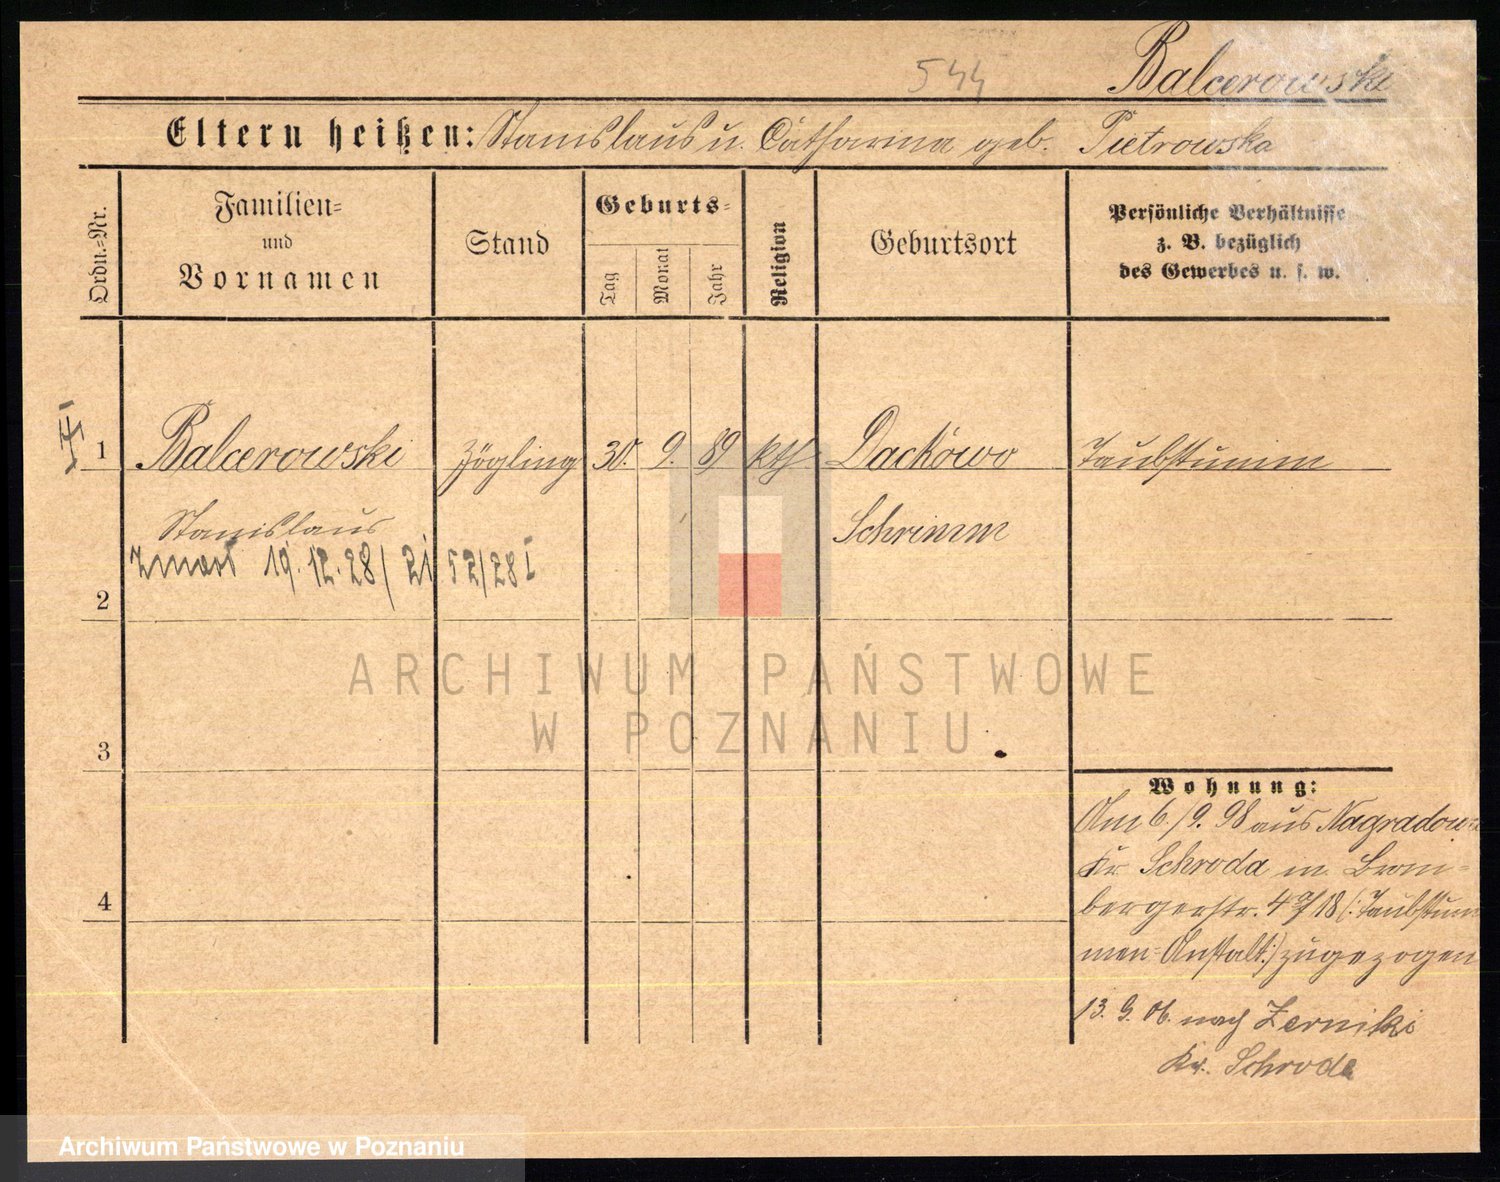 544 Balcerowski
Eltern heißen: Stanislaus u. Catharina geb. Pietrowska
Ordn.-Nr.
Familien-
und
Vornamen
Stand
Geburts-
Tag
Monat
Jahr
Religion
Geburtsort
Persönliche Verhältnisse
z. B. bezüglich
des Gewerbes u. s. w.
1 Balcerowski Zögling 30. 9. 89 kth Dackowo Taubstumm
Stanislaus Schrimm
zmarł 19.12.28/ 21 52/28 I
2
ARCHIWUM PAŃSTWOWE
W POZNANIU
3
Wohnung:
Am 6./9. 98 aus Nagradowo
Kr. Schroda in Brom-
bergerstr. 4 a/18 (: Taubstum
men-Anstalt:) zugezogen
13. 9. 06. nach Zerniki
Kr. Schroda
4
Archiwum Państwowe w Poznaniu